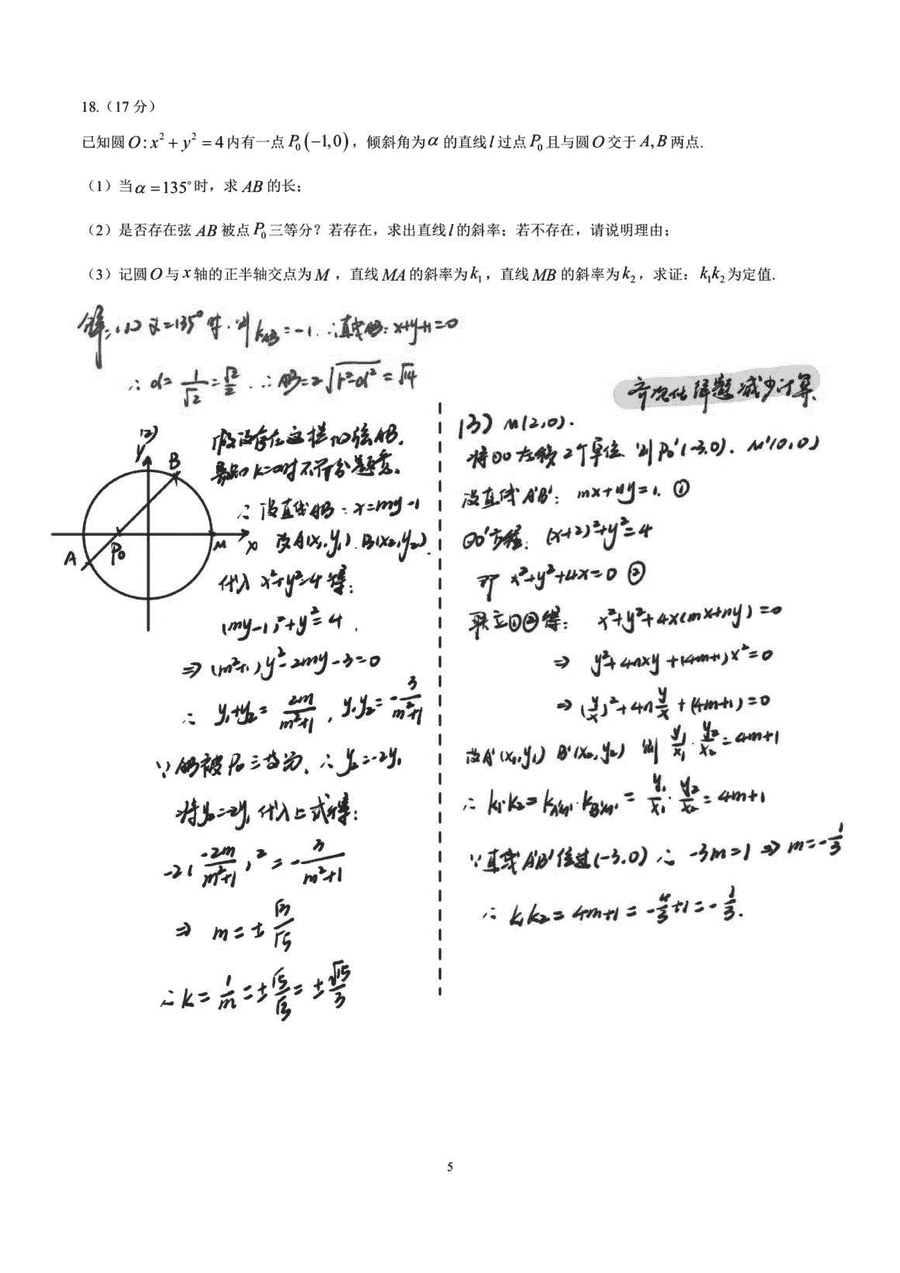 18.（17 分）
已知圆 O : x² + y² = 4 内有一点 P₀(−1,0)，倾斜角为 α 的直线 l 过点 P₀ 且与圆 O 交于 A, B 两点.
（1）当 α = 135° 时，求 AB 的长；
（2）是否存在弦 AB 被点 P₀ 三等分？若存在，求出直线 l 的斜率；若不存在，请说明理由；
（3）记圆 O 与 x 轴的正半轴交点为 M ，直线 MA 的斜率为 k₁，直线 MB 的斜率为 k₂，求证：k₁k₂ 为定值.
解: (1) α=135°时. 则 k_AB = -1. ∴直线AB: x+y+1=0
∴ d= 1/√2 = √2/2. ∴AB=2√(r²-d²) = √14
(2)
假设存在这样的弦AB.
易知 k=0时不符合题意.
∴ 设直线AB: x=my-1
设A(x₁,y₁). B(x₂,y₂)
代入 x²+y²=4 得:
(my-1)²+y²=4.
⇒ (m²+1)y²-2my-3=0
∴ y₁+y₂= 2m/(m²+1), y₁y₂= -3/(m²+1)
∵ AB被P₀三等分, ∴ y₂=-2y₁
将y₂=-2y₁ 代入上式得:
-2(-2m/(m²+1))² = -3/(m²+1)
⇒ m=±√3/√5
∴k= 1/m =±√5/√3= ±√15/3
y
B
A
P₀
M
x
齐次化解题减少计算
(3) M(2,0).
将⊙O 左移2个单位 则 P₀'(-3,0). M'(0,0)
设直线A'B': mx+ny=1. ①
⊙O'方程: (x+2)²+y²=4
即 x²+y²+4x=0 ②
联立①②得: x²+y²+4x(mx+ny)=0
⇒ y²+4nxy+(4m+1)x²=0
⇒ (y/x)²+4n y/x+(4m+1)=0
设A'(x₁,y₁) B'(x₂,y₂) 则 y₁/x₁ · y₂/x₂=4m+1
∴ k₁·k₂=k_A'M'·k_B'M' = y₁/x₁ · y₂/x₂=4m+1
∵直线A'B'恒过(-3,0) ∴ -3m=1 ⇒ m=-1/3
∴ k₁k₂= 4m+1 = -4/3+1=-1/3.
5